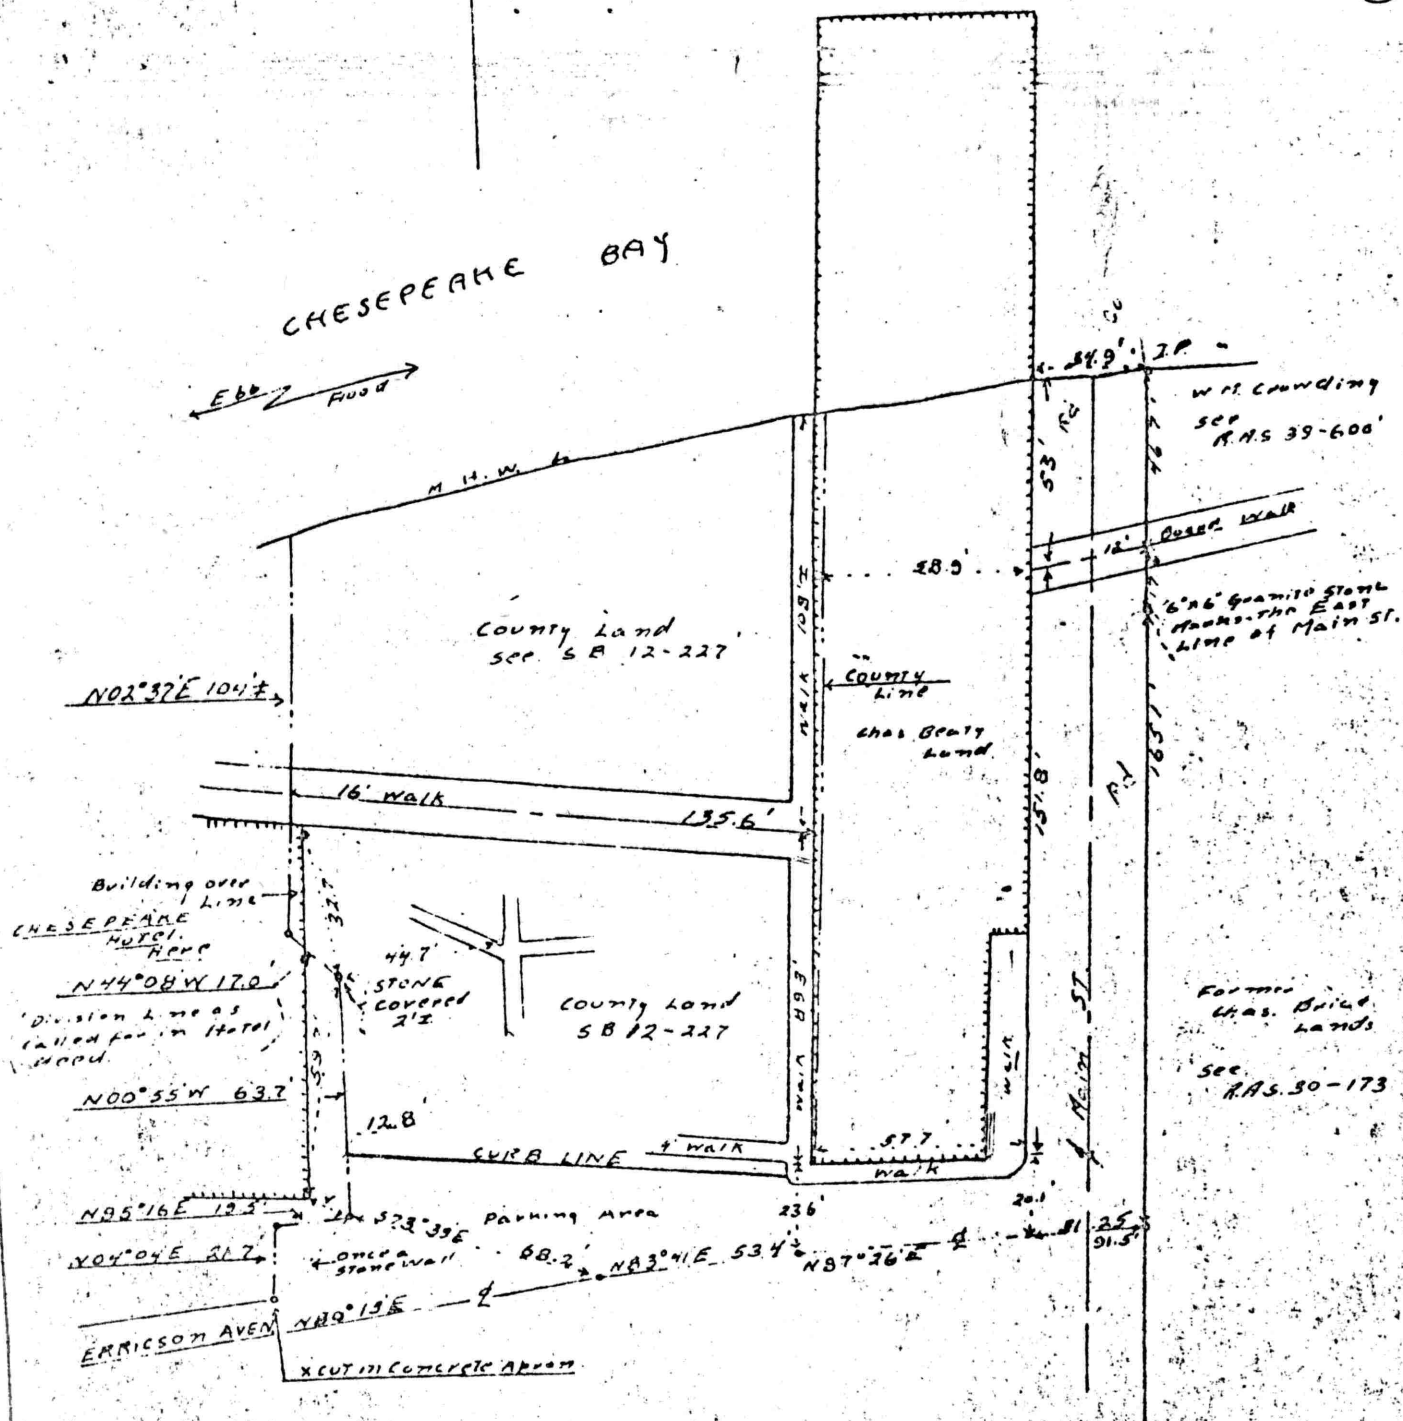 CHESEPEAKE BAY
Ebb
Flood
34.9'
I.P.
Wm. Crowding
see
R.A.S 39-600'
53'
M. H. W.
12'
Board Walk
28.9'
6"x6" Granite Stone
Marks The East
Line of Main St.
County Land
see S B 12-227
N02°37'E 104'±
Walk
County
Line
Chas Beaty
Land
151.8'
16' Walk
135.6'
Building over
Line
CHESEPEAKE
HOTEL
Here
32.7
44.7'
STONE
Covered
2'±
N44°08'W 17.0'
Division Line as
called for in Hotel
Deed.
County Land
S B 12-227
Walk
Walk
Main ST.
Former
Chas. Brice
Lands
see
R.A.S. 30-173
N00°55'W 63.7'
12.8'
CURB LINE
4' Walk
57.7
Walk
N85°16'E 19.5'
S73°39'E
Parking Area
23.6'
20.1'
25'
N04°04'E 21.7'
once a
stone wall
68.2'
N83°41'E 53.4'
N87°26'E
91.5'
ERRICSON AVEN
N80°19'E
X CUT in Concrete Apron